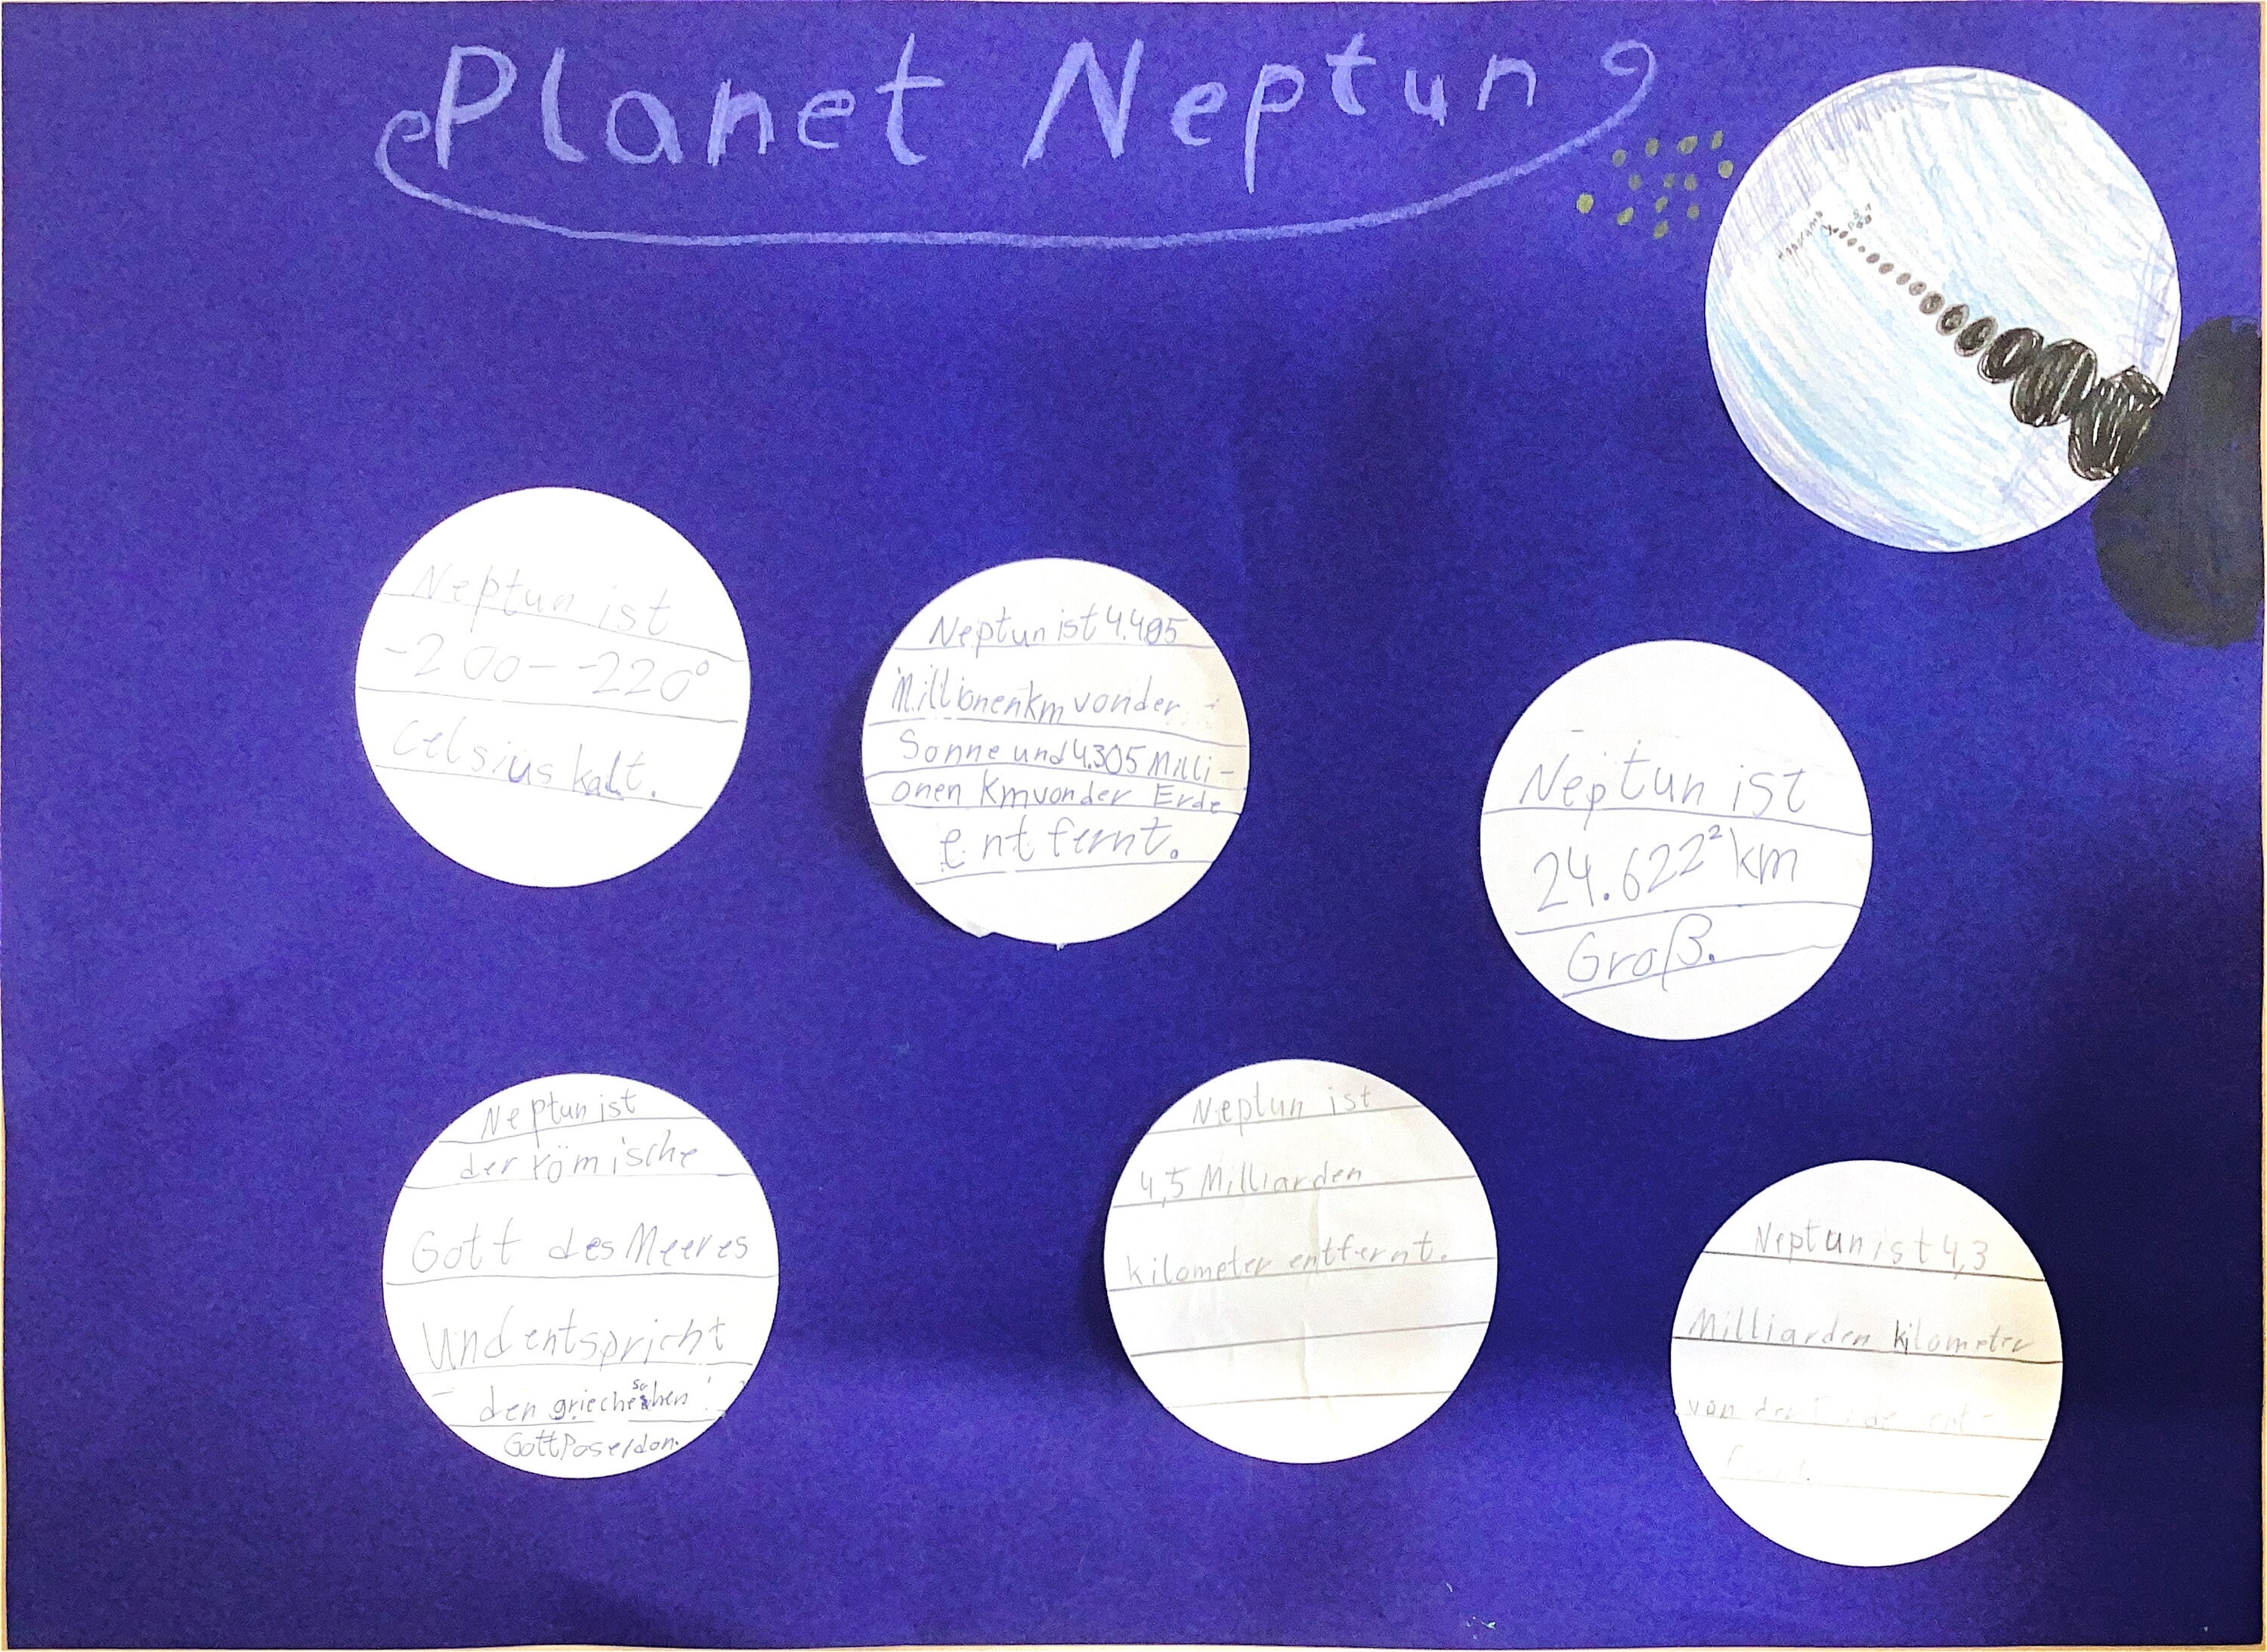 Planet Neptun
Neptun ist
-200--220°
Celsius kalt.
Neptun ist 4.495
Millionen km von der
Sonne und 4.305 Milli-
onen Km von der Erde
entfernt.
Neptun ist
24.622² km
Groß.
Neptun ist
der römische
Gott des Meeres
und entspricht
den
Gott Poseidon.
Neptun ist
4,5 Milliarden
kilometer entfernt.
Neptun ist 4,3
Milliarden kilometer
von der ent-